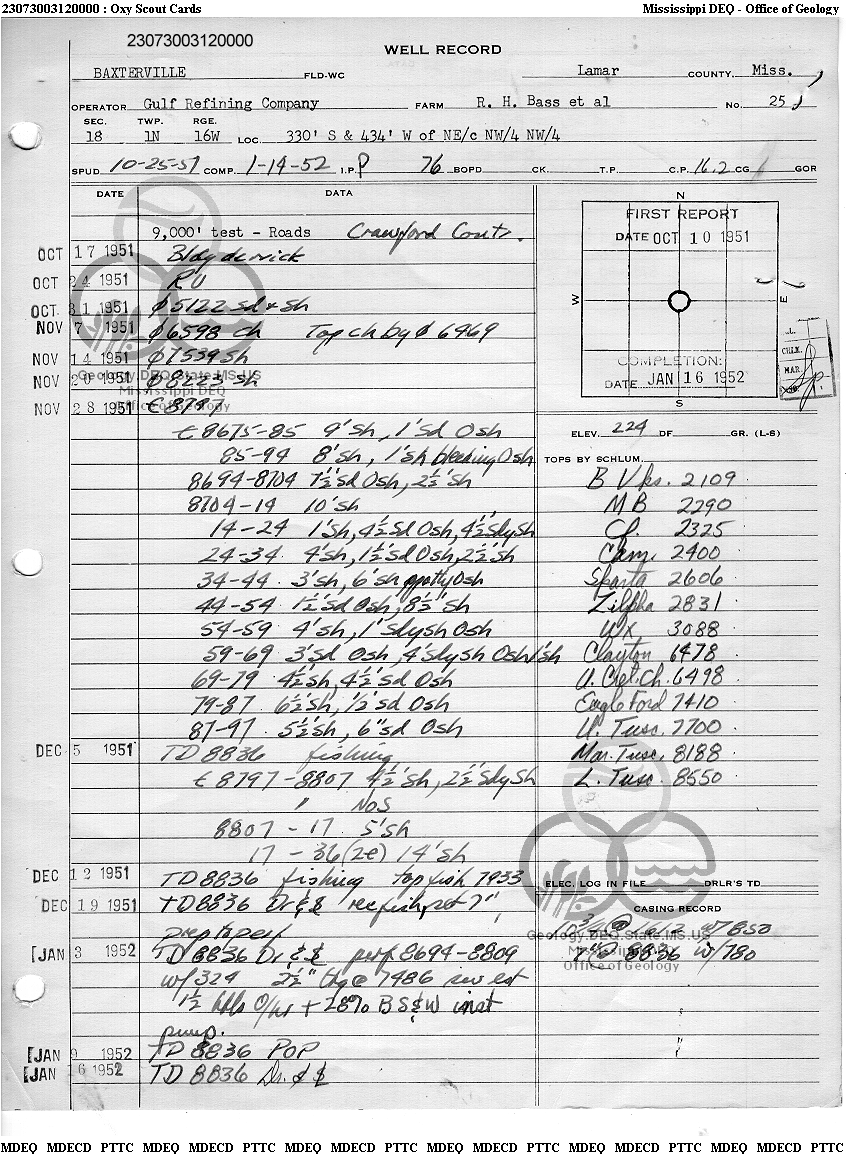 23073003120000 : Oxy Scout Cards Mississippi DEQ - Office of Geology
23073003120000
WELL RECORD
BAXTERVILLE FLD-WC Lamar COUNTY, Miss.
OPERATOR Gulf Refining Company FARM R. H. Bass et al No. 25
SEC. TWP. RGE.
18 1N 16W LOC. 330' S & 434' W of NE/c NW/4 NW/4
SPUD 10-25-51 COMP. 1-14-52 I.P. P 76 BOPD CK. T.P. C.P. 16.2 CG GOR
DATE DATA
9,000' test - Roads Crawford Contr.
OCT 17 1951 Bldg derrick
OCT 24 1951 RU
OCT. 31 1951 φ 5122 sd & sh
NOV 7 1951 φ 6598 Ch Top ch by φ 6469
NOV 14 1951 φ 7539 sh
NOV 20 1951 φ 8223 sh
NOV 28 1951 ȼ 8797
ȼ 8675-85 9'sh, 1'sd Osh
85-94 8'sh, 1'sh bleeding Osh
8694-8704 7½'sd Osh, 2½'sh
8704-14 10'sh
14-24 1'sh, 4½'sd Osh, 4½'sdy sh
24-34 4'sh, 1½'sd Osh, 2½'sh
34-44 3'sh, 6'sh spotty Osh
44-54 1½'sd Osh, 8½'sh
54-59 4'sh, 1'sdy sh Osh
59-69 3'sd Osh, 4'sdy sh Osh 1'sh
69-79 4½'sh, 4½'sd Osh
79-87 6½'sh, ½'sd Osh
87-97 5½'sh, 6"sd Osh
DEC 5 1951 TD 8836 fishing
ȼ 8797-8807 4½'sh, 2½'sdy sh
" NOS
8807-17 5'sh
17-36 (2c) 14'sh
DEC 12 1951 TD 8836 fishing top fish 7933
DEC 19 1951 TD 8836 Dr & $ rec fish, set 7"
prep to perf
JAN 3 1952 TD 8836 Dr & $ perf 8694-8809
w/324 2½" tbg @ 7486 sw est
1½ bbls O/hr + 28% BS&W inst
pump.
JAN 9 1952 TD 8836 POP
JAN 16 1952 TD 8836 Dr. & $
N
FIRST REPORT
DATE OCT 10 1951
W E
COMPLETION:
DATE JAN 16 1952
S
CHLK.
MAR.
ELEV. 224 DF GR. (L-S)
TOPS BY SCHLUM.
B Vks. 2109
MB 2290
Ch. 2325
Cham. 2400
Sparta 2606
Zilpha 2831
WX 3088
Clayton 6478
U. Cret. Ch. 6498
Eagle Ford 7410
U. Tusc. 7700
Mar. Tusc. 8188
L. Tusc. 8550
ELEC. LOG IN FILE DRLR'S TD
CASING RECORD
10 3/4 @ w/850
7" @ 8836 w/780
Geology.DEQ.State.MS.US
Mississippi DEQ
Office of Geology
Geology.DEQ.State.MS.US
Mississippi DEQ
Office of Geology
MDEQ MDECD PTTC MDEQ MDECD PTTC MDEQ MDECD PTTC MDEQ MDECD PTTC MDEQ MDECD PTTC MDEQ MDECD PTTC